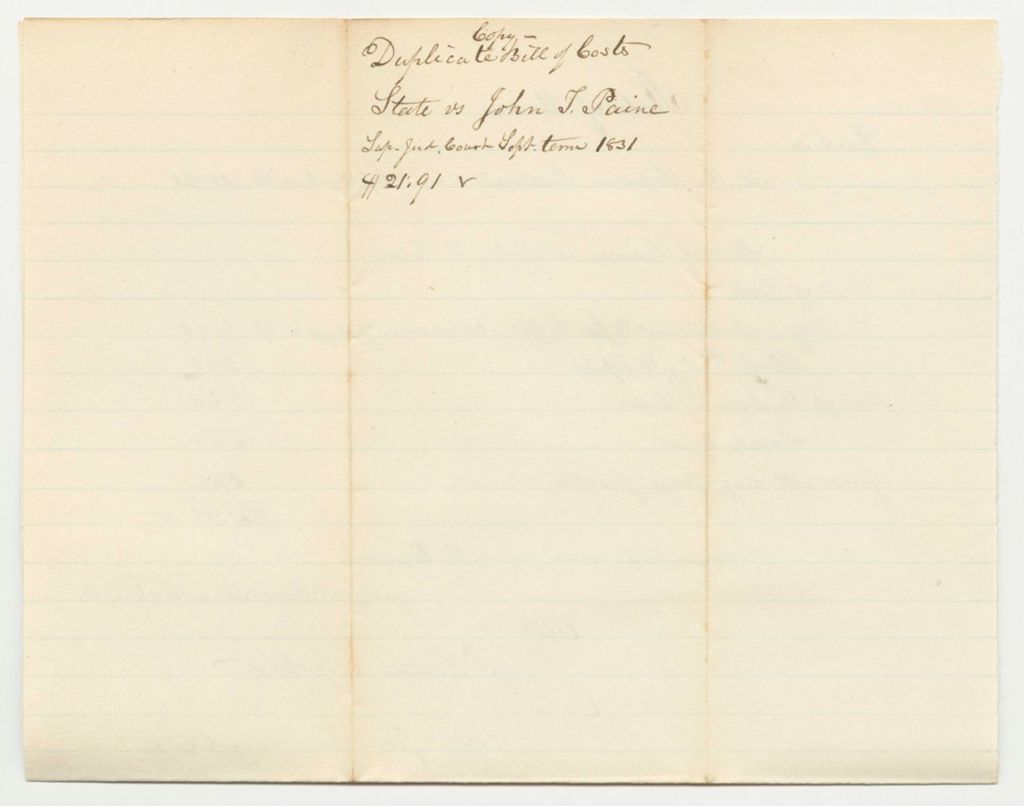 Copy -
Duplicate Bill of Costs
State vs John T. Paine
Sup. Jud. Court Sept. term 1831
$21.91 v